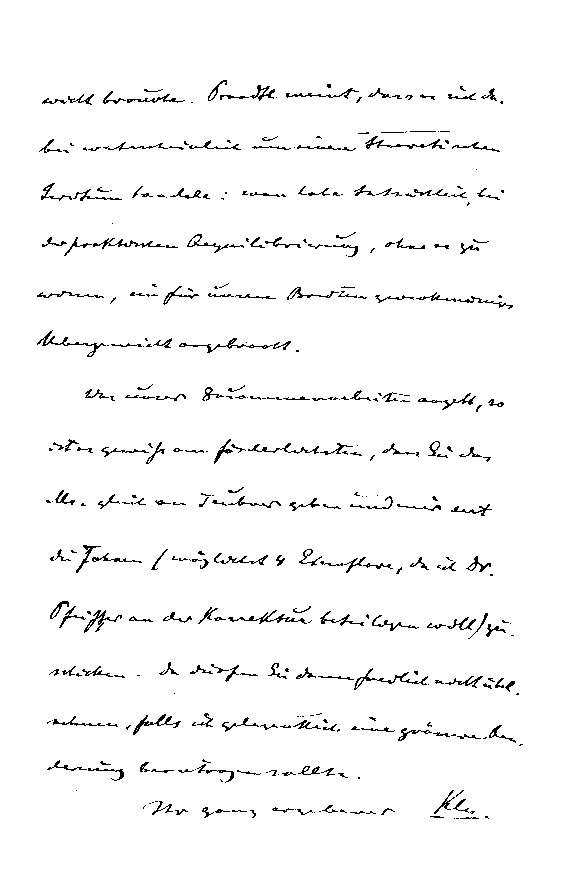 wicht brauchte. Prandtl meint, dass es sich da-
bei wahrscheinlich um einen theoretischen
Irrthum handele: man habe tatsächlich, bei
der praktischen Aequilibrierung, ohne es zu
wissen, ein für unsere zweckmässiges
Uebergewicht angebracht.
Was unser Zusammenarbeiten angeht, so
ist es gewiss am förderlichsten, dass Sie das
Ms. gleich an Teubner geben und mir erst
die Fahnen (möglichst 4 Exemplare, da ich Dr.
Pfeiffer an der Korrektur beteiligen will) zu-
schicken. Da dürfen Sie dann freilich nicht übel-
nehmen, falls ich gelegentlich eine grössere Aen-
derung beantragen sollte.
Ihr ganz ergebener Kln.